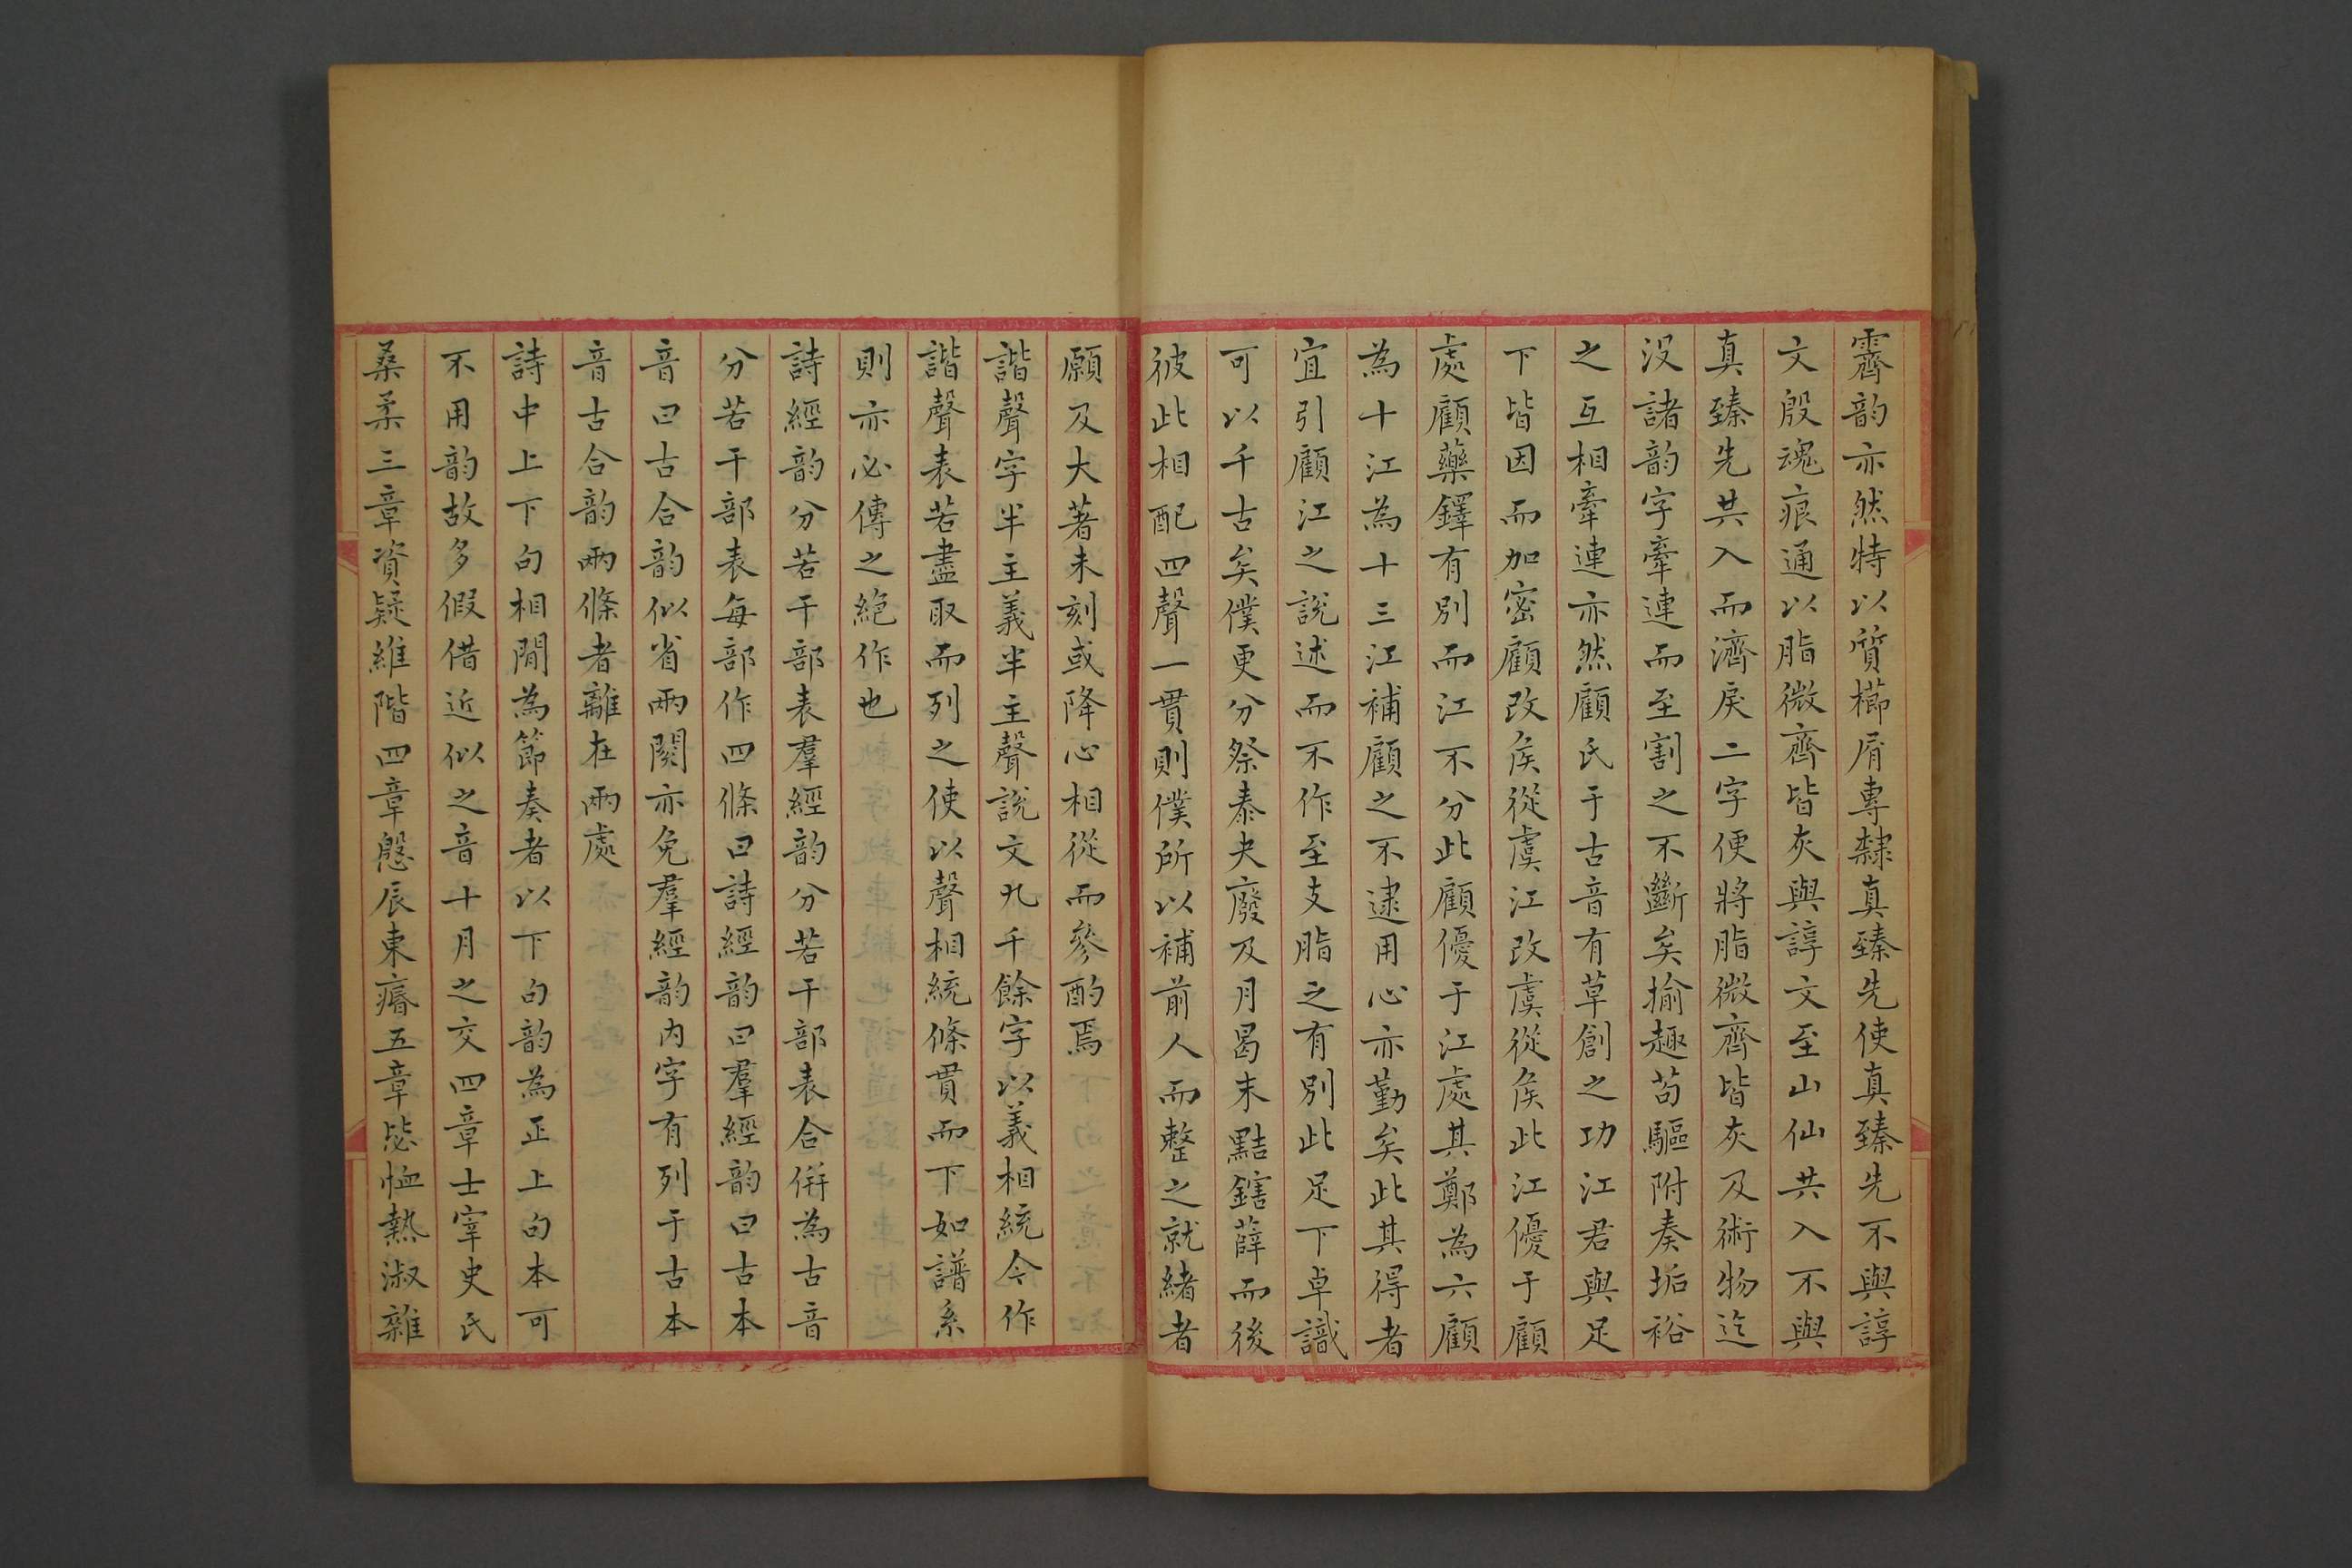 霽韵亦然特以質櫛屑專隸真臻先使真臻先不與諄
文殷魂痕通以脂微齊皆灰與諄文至山仙共入不與
真臻先共入而濟戾二字便將脂微齊皆灰及術物迄
没諸韵字牽連而至割之不斷矣揄趣苟驅附奏垢裕
之互相牽連亦然顧氏于古音有草創之功江君與足
下皆因而加密顧改矦從虞江改虞從矦此江優于顧
處顧藥鐸有別而江不分此顧優于江處其鄭為六顧
為十江為十三江補顧之不逮用心亦勤矣此其得者
宜引顧江之說述而不作至支脂之有別此足下卓識
可以千古矣僕更分祭泰夬廢及月曷末黠鎋薛而後
彼此相配四聲一貫則僕所以補前人而整之就緒者
願及大著未刻或降心相從而參酌焉
諧聲字半主義半主聲說文九千餘字以義相統今作
諧聲表若盡取而列之使以聲相統條貫而下如譜系
則亦必傳之絕作也
詩經韵分若干部表羣經韵分若干部表合併為古音
分若干部表每部作四條曰詩經韵曰羣經韵曰古本
音曰古合韵似省兩闋亦免羣經韵内字有列于古本
音古合韵兩條者離在兩處
詩中上下句相間為節奏者以下句韵為正上句本可
不用韵故多假借近似之音十月之交四章士宰史氏
桑柔三章資疑維階四章慇辰東瘠五章毖恤熱淑雜